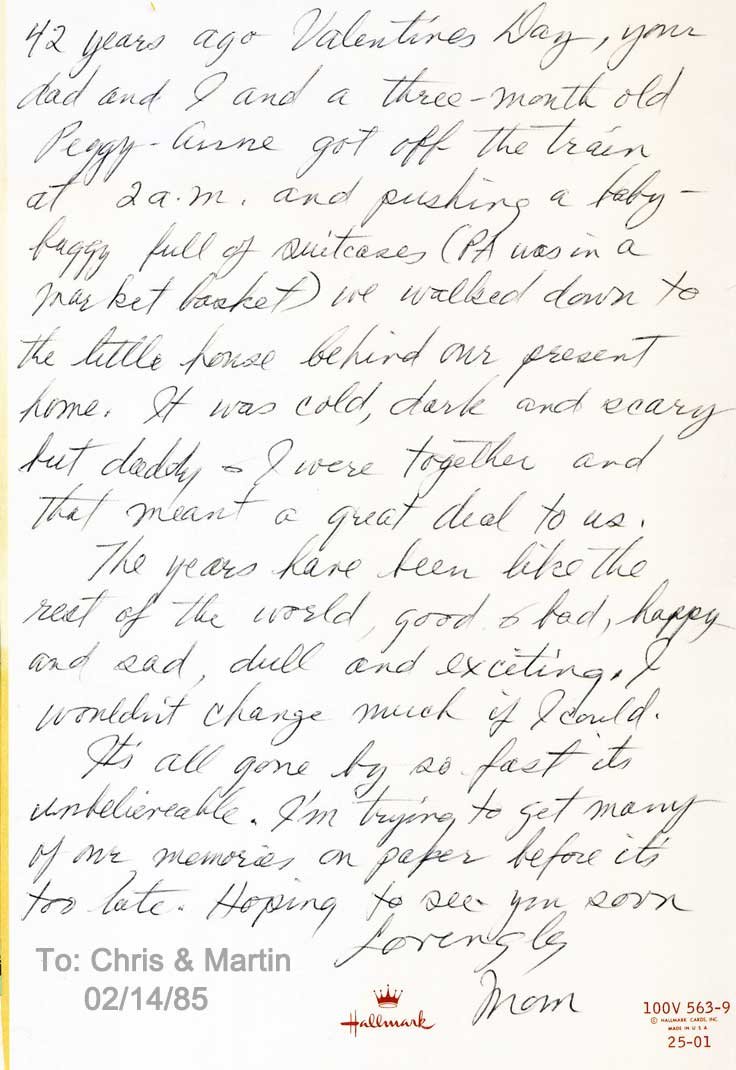 42 years ago Valentines Day, your
dad and I and a three-month old
Peggy-Anne got off the train
at 2 a.m. and pushing a baby-
buggy full of suitcases (PA was in a
market basket) we walked down to
the little house behind our present
home. It was cold, dark and scary
but daddy & I were together and
that meant a great deal to us.
The years have been like the
rest of the world, good & bad, happy
and sad, dull and exciting. I
wouldn't change much if I could.
It's all gone by so fast its
unbelieveable. I'm trying to get many
of our memories on paper before it's
too late. Hoping to see you soon
Lovingly
Mom
To: Chris & Martin
02/14/85
Hallmark
100V 563-9
© HALLMARK CARDS, INC.
MADE IN U.S.A.
25-01